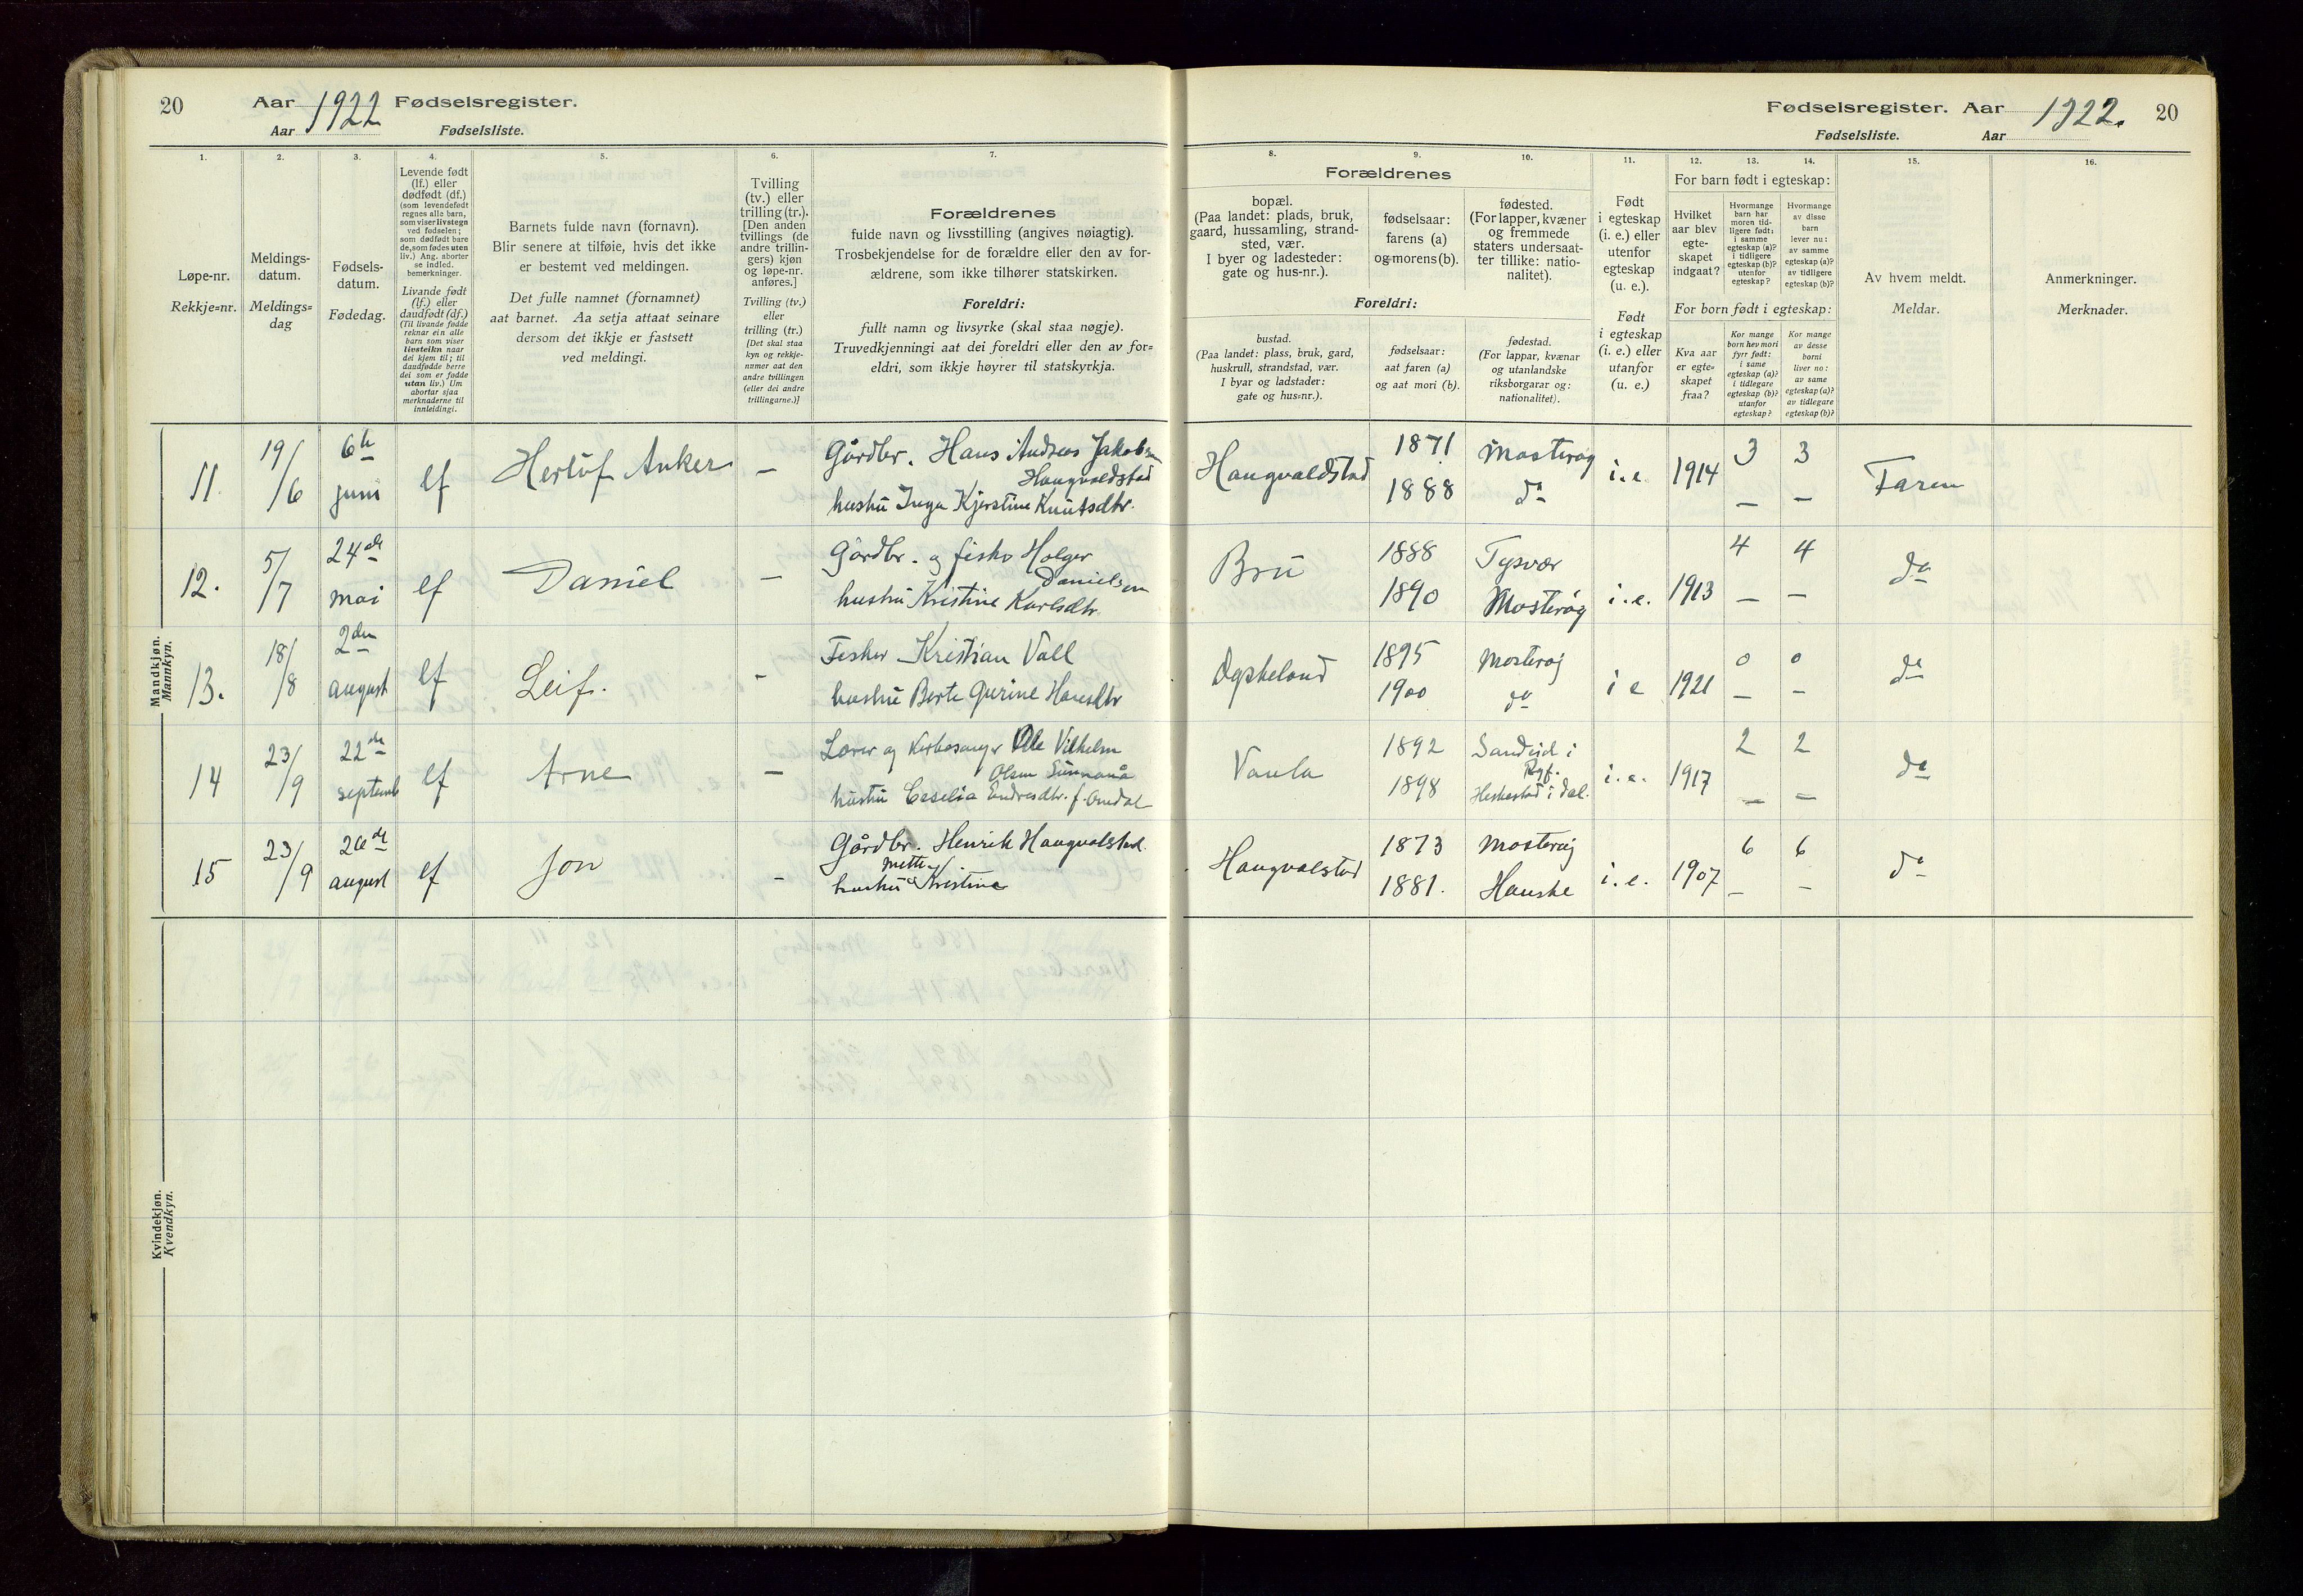 20 Aar 1922 Fødselsregister.
Aar Fødselsliste.
Fødselsregister. Aar 1922. 20
Fødselsliste. Aar
1. 2. 3. 4. 5. 6. 7.
Løpe-nr.
Rekkje=nr.
Meldings-
datum.
Meldings=
dag
Fødsels-
datum.
Fødedag.
Levende født
(lf.) eller
dødfødt (df.)
(som levendefødt
regnes alle barn,
som viser livstegn
ved fødselen;
som dødfødt bare
de, som fødes uten
liv.) Ang. aborter
se indled.
bemerkninger.
Livande født
(lf.) eller
daudfødt (df.)
(Til livande fødde
reknar ein alle
barn som viser
livsteikn naar
dei kjem til; til
daudfødde berre
dei som er fødde
utan liv.) Um
abortar sjaa
merknaderne til
innleidingi.
Barnets fulde navn (fornavn).
Blir senere at tilføie, hvis det ikke
er bestemt ved meldingen.
Det fulle namnet (fornamnet)
aat barnet. Aa setja attaat seinare
dersom det ikkje er fastsett
ved meldingi.
Tvilling
(tv.) eller
trilling (tr.).
[Den anden
tvillings (de
andre trillin-
gers) kjøn
og løpe-nr.
anføres.]
Tvilling (tv.)
eller
trilling (tr.)
[Det skal staa
kyn og rekkje-
numer aat den
andre tvillingen
(eller dei andre
trillingarne.)]
Forældrenes
fulde navn og livsstilling (angives nøiagtig).
Trosbekjendelse for de forældre eller den av for-
ældrene, som ikke tilhører statskirken.
Foreldri:
fullt namn og livsyrke (skal staa nøgje).
Truvedkjenningi aat dei foreldri eller den av for=
eldri, som ikkje høyrer til statskyrkja.
8. 9. 10. 11. 12. 13. 14. 15. 16.
Forældrenes
bopæl.
(Paa landet: plads, bruk,
gaard, hussamling, strand-
sted, vær.
I byer og ladesteder:
gate og hus-nr.).
fødselsaar:
farens (a)
og morens (b).
fødested.
(For lapper, kvæner
og fremmede
staters undersaat-
ter tillike: natio-
nalitet).
Foreldri:
bustad.
(Paa landet: plass, bruk, gard,
huskrull, strandstad, vær.
I byar og ladstader:
gate og hus=nr.).
fødselsaar:
aat faren (a)
og aat mori (b).
fødestad.
(For lappar, kvænar
og utanlandske
riksborgarar og:
nationalitet).
Født
i egteskap
(i. e.) eller
utenfor
egteskap
(u. e.).
Født
i egteskap
(i. e.) eller
utanfor
(u. e.)
For barn født i egteskap:
Hvilket
aar blev
egte-
skapet
indgaat?
Hvormange
barn har
moren tid-
ligere født:
i samme
egteskap (a)?
i tidligere
egteskap (b)?
utenfor
egteskap?
Hvormange
av disse
barn
lever nu:
av samme
egteskap (a)?
av tidligere
egteskap (b)?
For born født i egteskap:
Kva aar
er egte=
skapet
fraa?
Kor mange
born hev mori
fyrr født:
i same
egteskap (a)?
i tidlegare
egteskap (b)?
utanfor
egteskap?
Kor mange
av desse
borni
liver no:
av same
egteskap (a)?
av tidlegare
egteskap (b)?
Av hvem meldt.
Meldar.
Anmerkninger.
Merknader.
Mandkjøn.
Mannkyn.
11 19/6 6te juni lf Herluf Anker —
Gårdbr. Hans Andreas Jakobsen
Haugvaldstad
hustru Inga Kjerstine Knutsdtr.
Haugvaldstad 1871 Mosterøy i.e. 1914 3 3 Faren
1888 do — —
12. 5/7 24de mai lf Daniel —
Gårdbr. og fisker Holger
Danielsen
hustru Kristine Karlsdtr.
Bru 1888 Tysvær 4 4 do
1890 Mosterøy i.e. 1913 — —
13. 18/8 2den august lf Leif. -
Fisker Kristian Vall
hustru Berte Gurine Hansdtr
Dysheland 1895 Mosterøy 0 0 do
1900 do i e 1921 — —
14 23/9 22de septemb lf Arne —
Lærer og Kirkesanger Ole Vilhelm
Olsen Sunnanå
hustru Cecelia Endresdtr. f. Omdal
Vaula 1892 Sandeid i 2 2 do
Ryf. i.e. 1917
1898 Heskestad i Dal. — —
15 23/9 26de august lf Jon -
Gårdbr. Henrik Haugvalstad.
Mette
hustru Kristine
Haugvalstad 1873 Mosterøy 6 6 do
1881. Hauske i.e. 1907 — —
Kvindekjøn.
Kvendkyn.